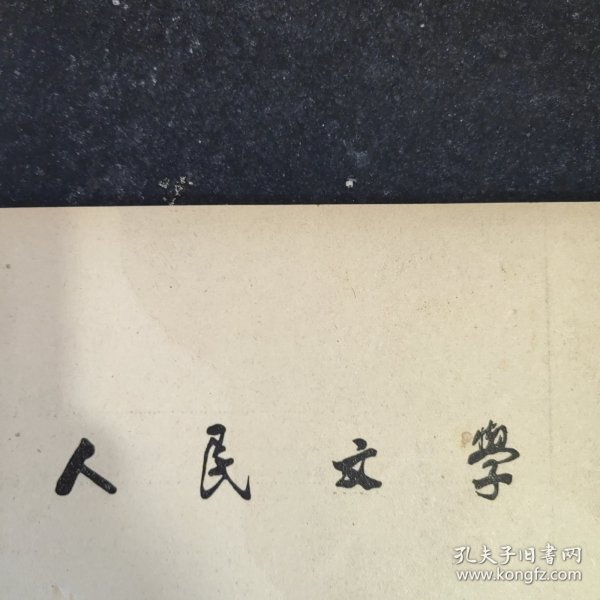 人民文學
孔夫子旧書网
www.kongfz.com